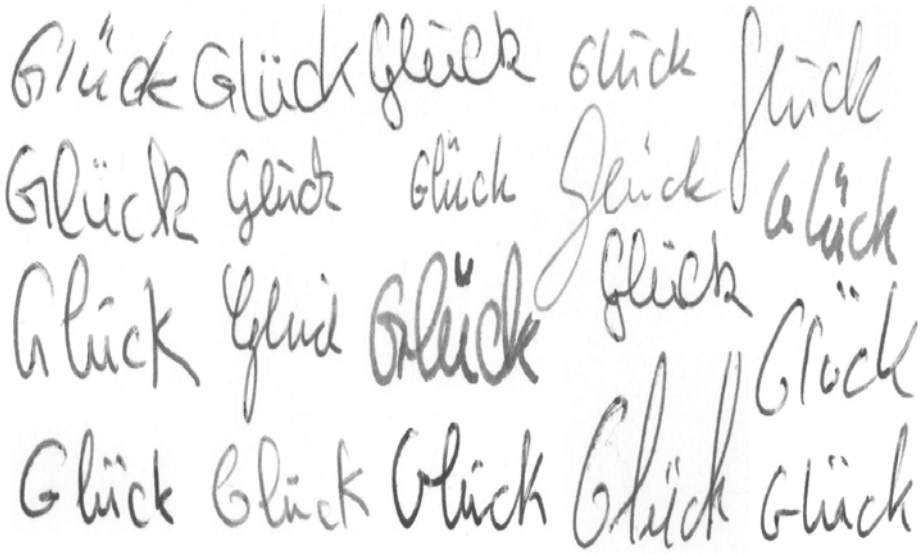 Glück Glück Glück Glück Glück
Glück Glück Glück Glück Glück
Glück Glück Glück Glück Glück
Glück Glück Glück Glück Glück